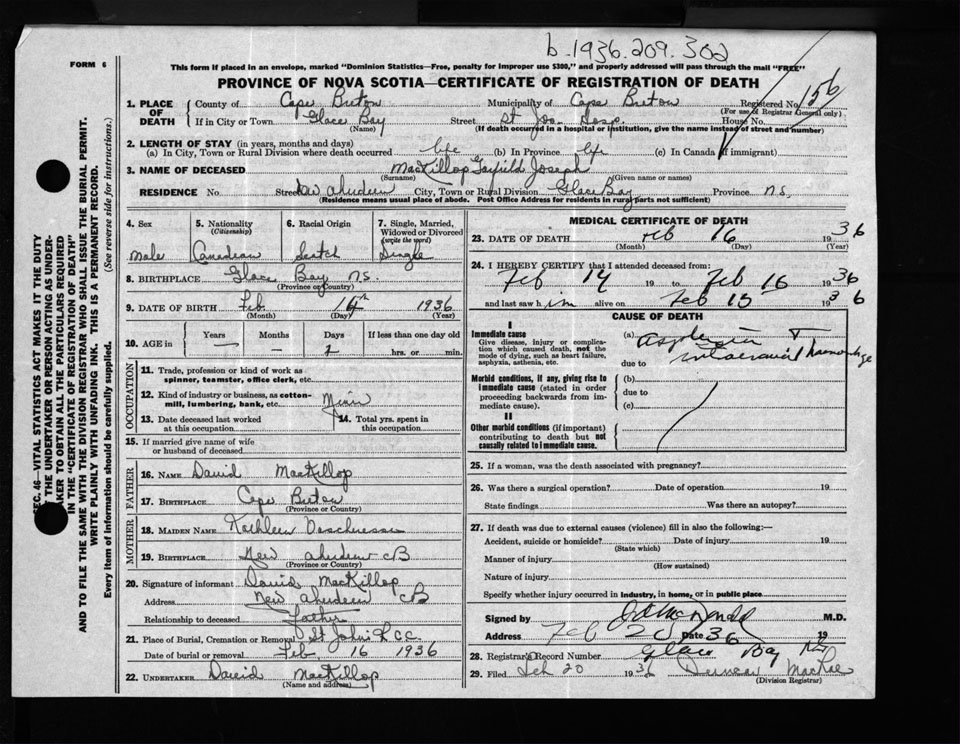 b. 1936.209.302
FORM 6
This form if placed in an envelope, marked "Dominion Statistics—Free, penalty for improper use $300," and properly addressed will pass through the mail "FREE"
PROVINCE OF NOVA SCOTIA—CERTIFICATE OF REGISTRATION OF DEATH
1. PLACE OF DEATH County of Cape Breton Municipality of Cape Breton Registered No. 156
(For use of Registrar General only)
If in City or Town Glace Bay Street St Jos. Hosp. House No.
(Name) (If death occurred in a hospital or institution, give the name instead of street and number)
2. LENGTH OF STAY (in years, months and days)
(a) In City, Town or Rural Division where death occurred life (b) In Province life (c) In Canada (if immigrant)
3. NAME OF DECEASED MacKillop Garfield Joseph
(Surname) (Given name or names)
RESIDENCE No Street New Aberdeen City, Town or Rural Division Glace Bay Province N.S.
(Residence means usual place of abode. Post Office Address for residents in rural parts not sufficient)
4. Sex 5. Nationality (Citizenship) 6. Racial Origin 7. Single, Married, Widowed or Divorced (write the word)
Male Canadian Scotch Single
8. BIRTHPLACE Glace Bay N.S.
(Province or Country)
9. DATE OF BIRTH Feb. 14th 1936
(Month) (Day) (Year)
10. AGE in Years Months Days If less than one day old
— — hrs. or min.
OCCUPATION
11. Trade, profession or kind of work as spinner, teamster, office clerk, etc.
12. Kind of industry or business, as cotton-mill, lumbering, bank, etc.
13. Date deceased last worked at this occupation
14. Total yrs. spent in this occupation
15. If married give name of wife or husband of deceased
FATHER
16. NAME David MacKillop
17. BIRTHPLACE Cape Breton
(Province or Country)
MOTHER
18. MAIDEN NAME Kathleen
19. BIRTHPLACE New Aberdeen CB
(Province or Country)
20. Signature of informant David MacKillop
Address New Aberdeen CB
Relationship to deceased Father
21. Place of Burial, Cremation or Removal St John's
Date of burial or removal Feb 16 1936
22. UNDERTAKER David MacKillop
(Name and address)
MEDICAL CERTIFICATE OF DEATH
23. DATE OF DEATH Feb 16 1936
(Month) (Day) (Year)
24. I HEREBY CERTIFY that I attended deceased from:
Feb 14 19 to Feb 16 1936
and last saw him alive on Feb 15 1936
CAUSE OF DEATH
I
Immediate cause
Give disease, injury or complication which caused death, not the mode of dying, such as heart failure, asphyxia, asthenia, etc.
(a) Asphyxia
due to intracranial haemorrhage
Morbid conditions, if any, giving rise to immediate cause (stated in order proceeding backwards from immediate cause).
(b)
due to
(c)
II
Other morbid conditions (if important) contributing to death but not causally related to immediate cause.
25. If a woman, was the death associated with pregnancy?
26. Was there a surgical operation? Date of operation 19
State findings Was there an autopsy?
27. If death was due to external causes (violence) fill in also the following:—
Accident, suicide or homicide? Date of injury 19
(State which)
Manner of injury
(How sustained)
Nature of injury
Specify whether injury occurred in industry, in home, or in public place
Signed by M.D.
Address Feb 20 Date 36 19
28. Registrar's Record Number Glace Bay NS
29. Filed Feb 20 1936 Duncan MacRae
(Division Registrar)
SEC. 46—VITAL STATISTICS ACT MAKES IT THE DUTY
OF THE UNDERTAKER OR PERSON ACTING AS UNDER-
TAKER TO OBTAIN ALL THE PARTICULARS REQUIRED
IN THE "CERTIFICATE OF REGISTRATION OF DEATH"
AND TO FILE THE SAME WITH THE DIVISION REGISTRAR WHO SHALL ISSUE THE BURIAL PERMIT.
WRITE PLAINLY WITH UNFADING INK. THIS IS A PERMANENT RECORD.
Every item of information should be carefully supplied. (See reverse side for instructions.)